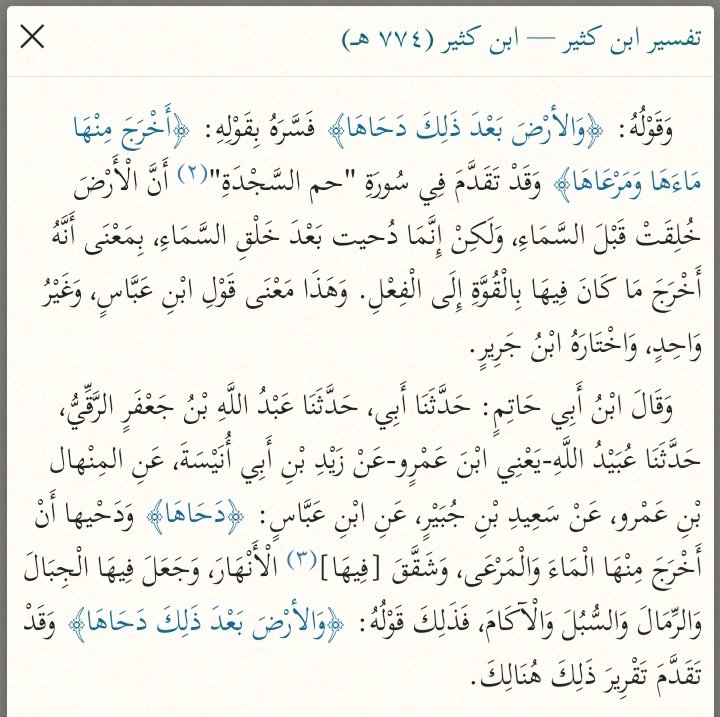 تفسير ابن كثير — ابن كثير (٧٧٤ هـ)
وَقَوْلُهُ: ﴿وَالأرْضَ بَعْدَ ذَلِكَ دَحَاهَا﴾ فَسَّرَهُ بِقَوْلِهِ: ﴿أَخْرَجَ مِنْهَا
مَاءَهَا وَمَرْعَاهَا﴾ وَقَدْ تَقَدَّمَ فِي سُورَةِ "حم السَّجْدَةِ"(٢) أَنَّ الْأَرْضَ
خُلِقَتْ قَبْلَ السَّمَاءِ، وَلَكِنْ إِنَّمَا دُحيت بَعْدَ خَلْقِ السَّمَاءِ، بِمَعْنَى أَنَّهُ
أَخْرَجَ مَا كَانَ فِيهَا بِالْقُوَّةِ إِلَى الْفِعْلِ. وَهَذَا مَعْنَى قَوْلِ ابْنِ عَبَّاسٍ، وَغَيْرُ
وَاحِدٍ، وَاخْتَارَهُ ابْنُ جَرِيرٍ.
وَقَالَ ابْنُ أَبِي حَاتِمٍ: حَدَّثَنَا أَبِي، حَدَّثَنَا عَبْدُ اللَّهِ بْنُ جَعْفَرٍ الرَّقِّيُّ،
حَدَّثَنَا عُبَيْدُ اللَّهِ-يَعْنِي ابْنَ عَمْرٍو-عَنْ زَيْدِ بْنِ أَبِي أُنَيْسَةَ، عَنِ المِنْهال
بْنِ عَمْرو، عَنْ سَعِيدِ بْنِ جُبَيْرٍ، عَنِ ابْنِ عَبَّاسٍ: ﴿دَحَاهَا﴾ وَدَحْيها أَنْ
أَخْرَجَ مِنْهَا الْمَاءَ وَالْمَرْعَى، وَشَقَّقَ [فِيهَا](٣) الْأَنْهَارَ، وَجَعَلَ فِيهَا الْجِبَالَ
وَالرِّمَالَ وَالسُّبُلَ وَالْآكَامَ، فَذَلِكَ قَوْلُهُ: ﴿وَالأرْضَ بَعْدَ ذَلِكَ دَحَاهَا﴾ وَقَدْ
تَقَدَّمَ تَقْرِيرَ ذَلِكَ هُنَالِكَ.